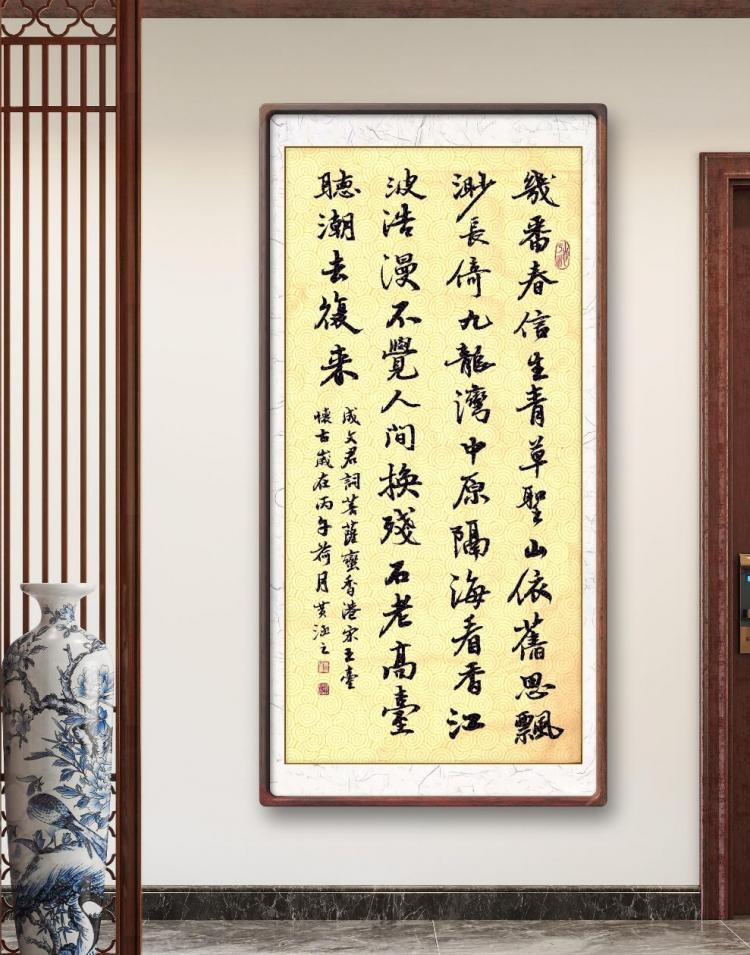 幾番春信生青草聖山依舊思飄
渺長倚九龍灣中原隔海看香江
波浩漫不覺人間換殘石老高臺
聽潮去復来
成文君詞菩薩蠻香港宋王臺
懷古歲在丙午荷月黄涵之